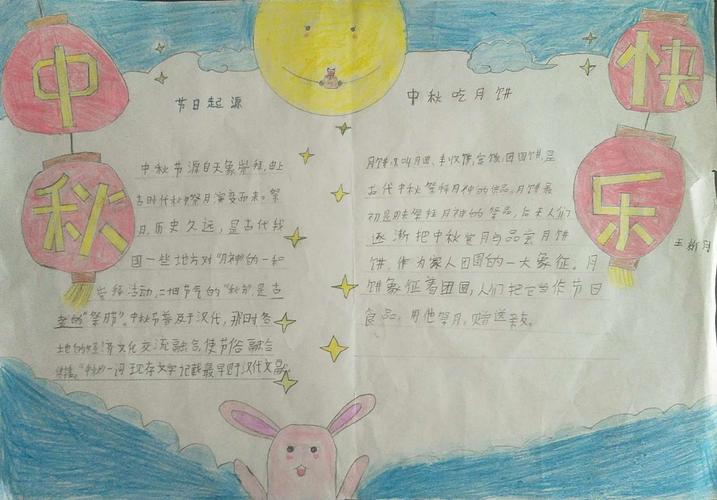 中秋
快乐
节日起源
中秋节源自天象崇拜,由上
古时代秋夕祭月演变而来。祭
月,历史久远,是古代我
国一些地方对"月神"的一种
崇拜活动,二十四节气的"秋分",是古
老的"祭月节"。中秋节普及于汉代,那时各
地的经济文化交流融合,使节俗融合
传播。"中秋"一词现存文字记载最早见于汉代文献
中秋吃月饼
月饼,又叫月团、丰收饼、宫饼、团圆饼,是
古代中秋祭拜月神的供品。月饼最
初是用来祭拜月神的祭品,后来人们
逐渐把中秋赏月与品尝月饼
饼,作为家人团圆的一大象征。月
饼象征着团圆,人们把它当作节日
食品,用他祭月,赠送亲友。